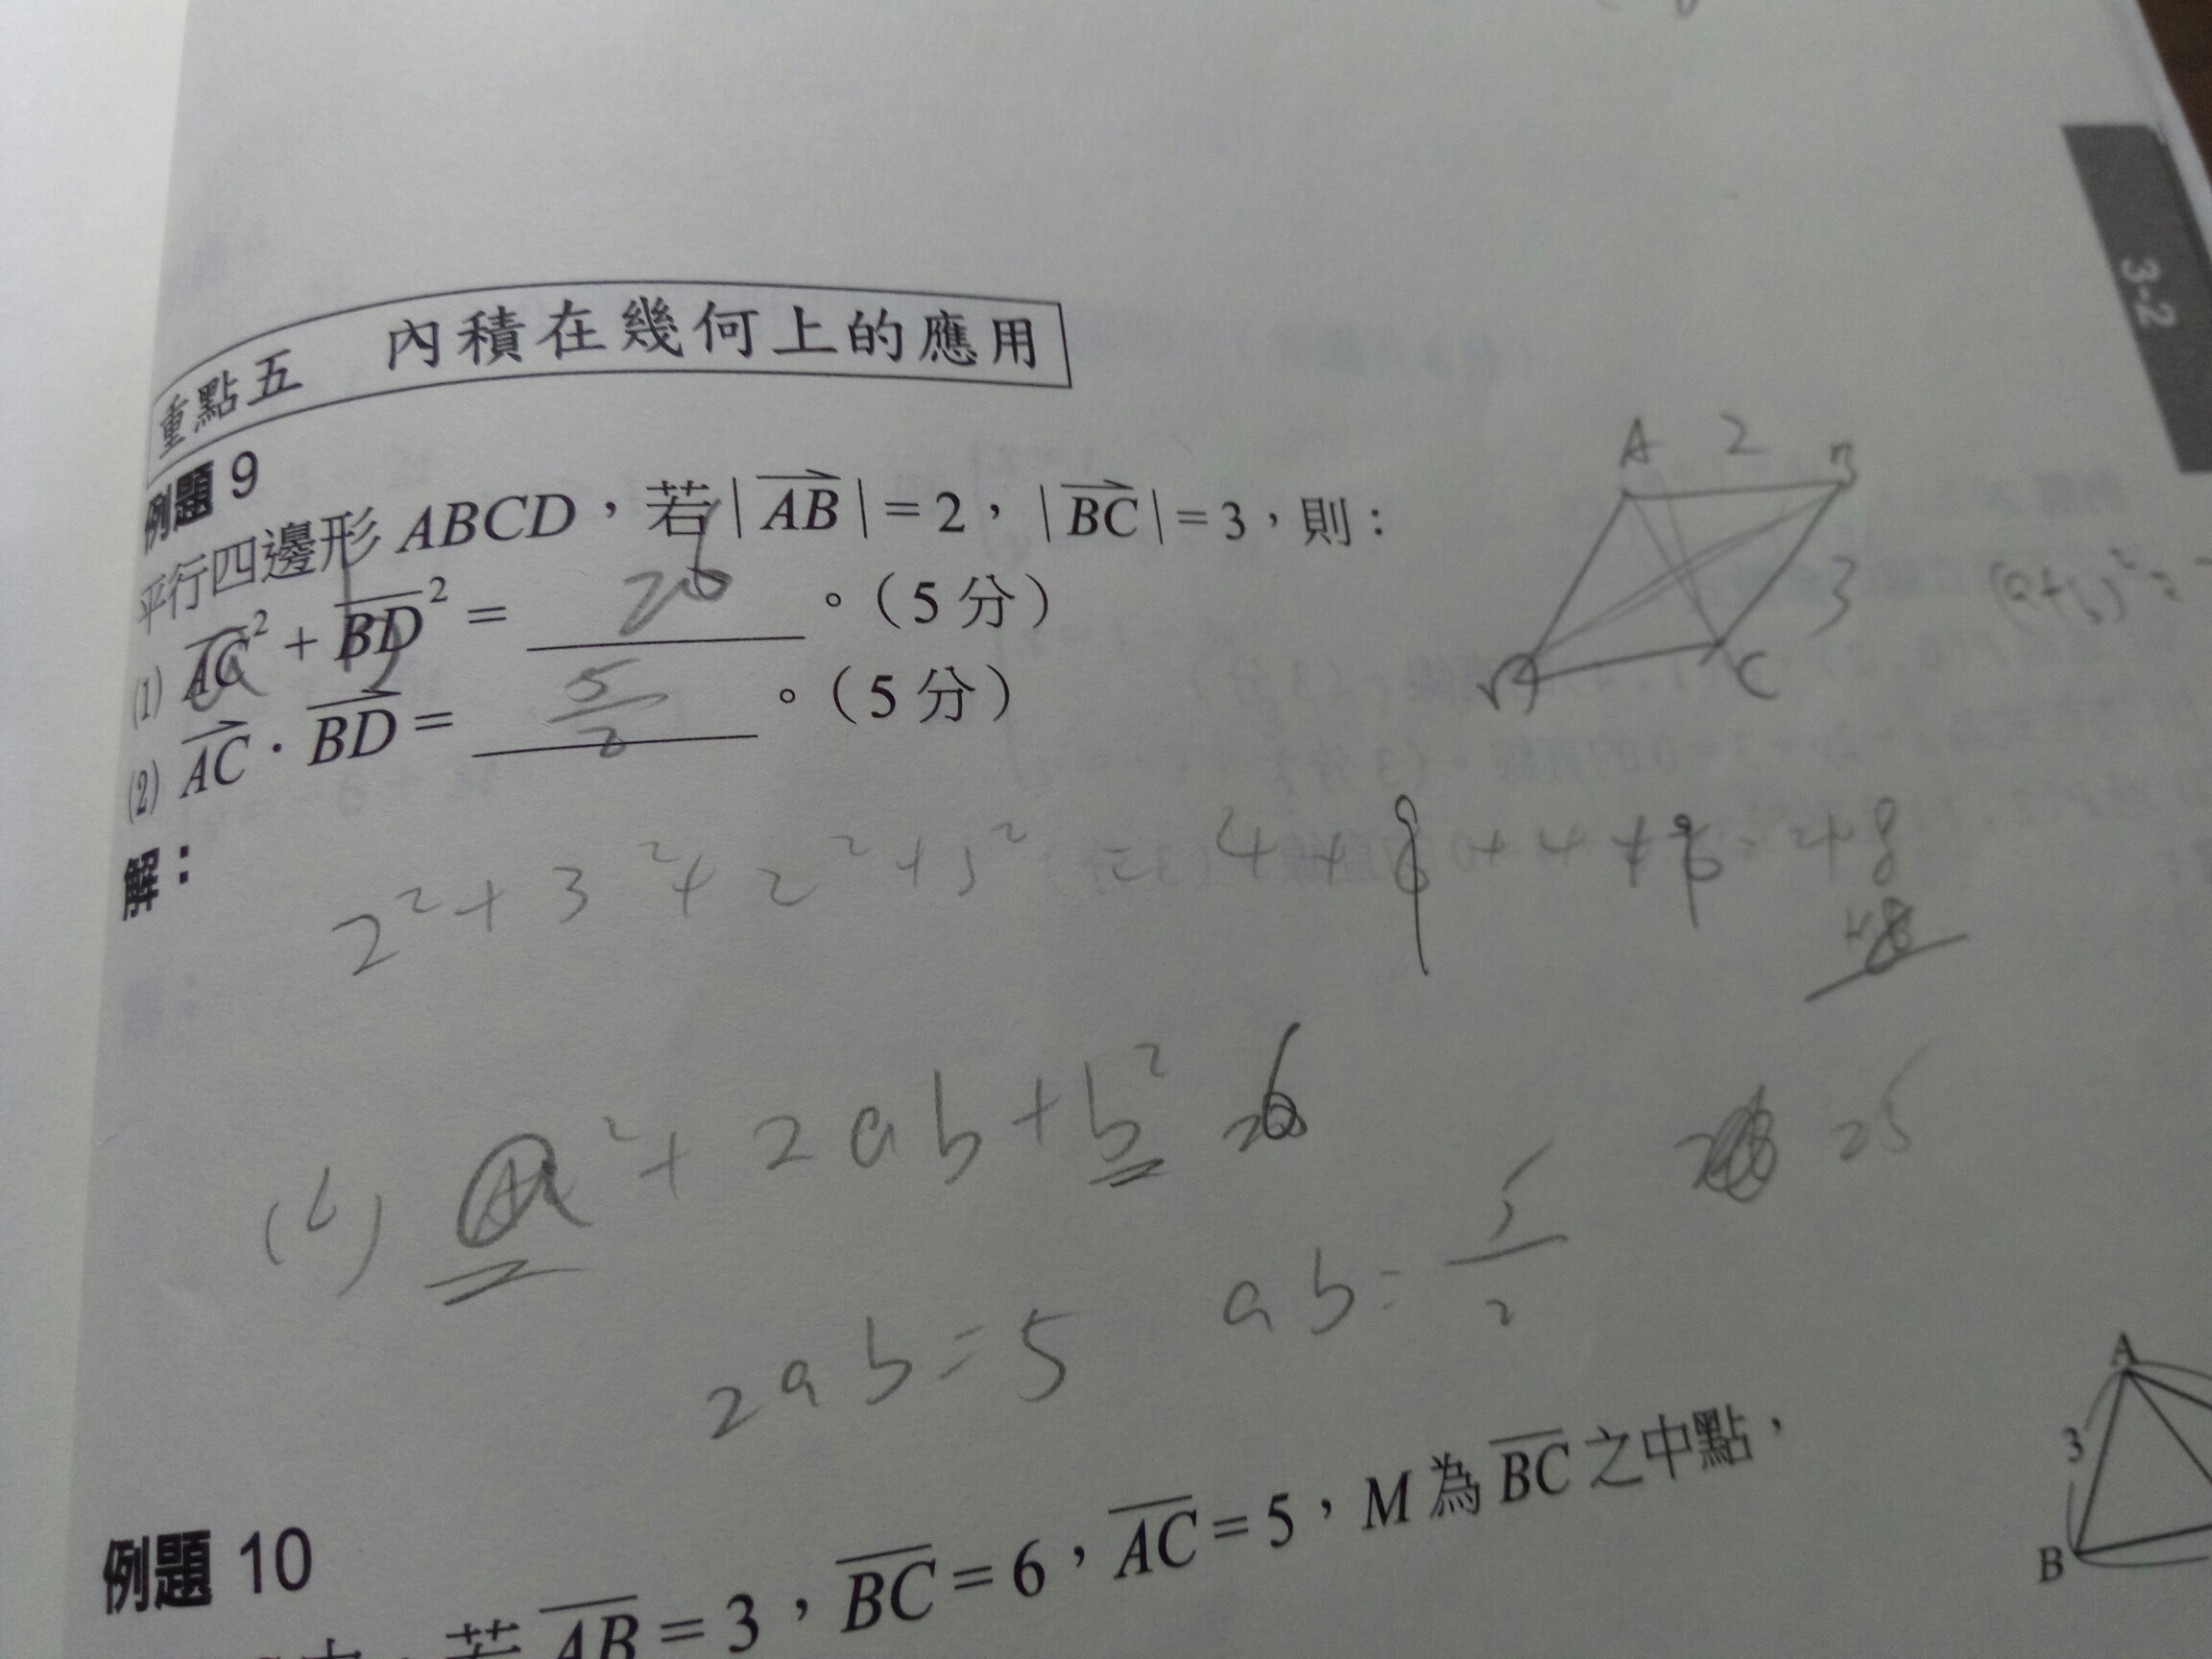 3-2
重點五 內積在幾何上的應用
例題 9
平行四邊形 ABCD，若 | AB | = 2，| BC | = 3，則：
(1) AC² + BD² = 26 。(5 分)
(2) AC · BD = 5/2 。(5 分)
A 2 B
3
C
(a+b)² =
解：
2² + 3² + 2² + 3² = 4 + 9 + 4 + 9 =
a² + 2ab + b² 26
25
2ab = 5 ab = 5/2
例題 10
若 AB = 3，BC = 6，AC = 5，M 為 BC 之中點，
A
3
B